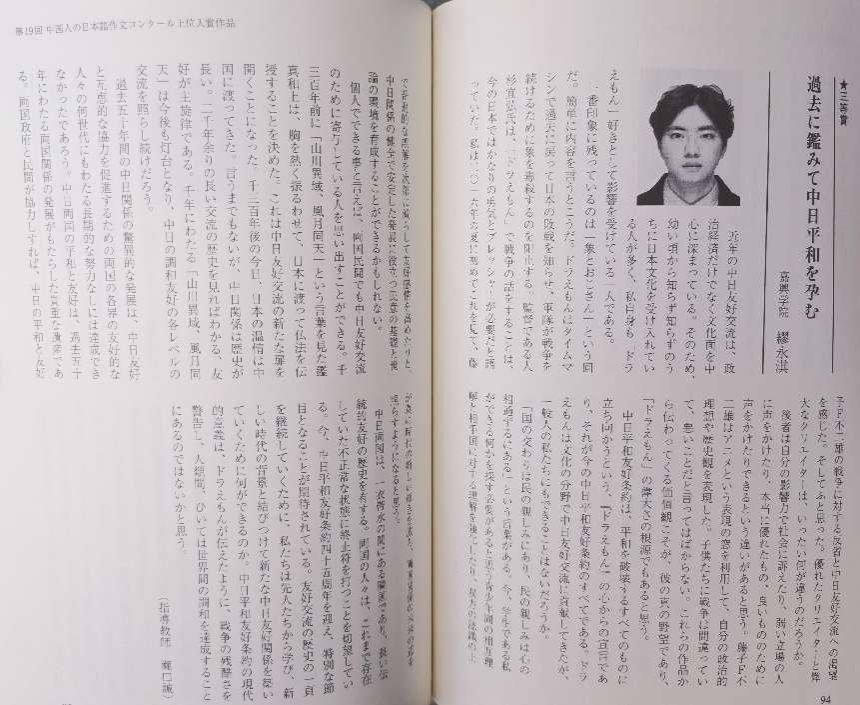 ★三等賞
過去に鑑みて中日平和を孕む
嘉興学院 繆永淇
近年の中日友好交流は、政
治経済だけでなく文化面を中
心に深まっている。そのため、
幼い頃から知らず知らずのう
ちに日本文化を受け入れてい
る人が多く、私自身も「ドラ
えもん」好きとして影響を受けている一人である。
一番印象に残っているのは「象とおじさん」という回
だ。簡単に内容を言うとこうだ。ドラえもんはタイムマ
シンで過去に戻って日本の敗戦を知らせ、軍隊が戦争を
続けるために象を毒殺するのを阻止する。監督である
杉宜弘氏は、「ドラえもん」で戦争の話をすることは、
今の日本ではかなりの勇気とプレッシャーが必要だと語
っていた。私は、二〇一六年の夏に初めてこれを見て、藤
子・F・不二雄の戦争に対する反省と中日友好交流への渇望
を感じた。そしてふと思った。優れたクリエイターと偉
大なクリエイターは、いったい何が違うのだろうか。
後者は自分の影響力で社会に訴えたり、弱い立場の人
に声をかけたり、本当に優れたもの、良いもののために
声をかけたりできるという違いがあると思う。藤子F不
二雄はアニメという表現の窓を利用して、自分の政治的
理想や歴史観を表現した。子供たちに戦争は間違ってい
て、悪いことだと言ってはばからない。これらの作品か
ら伝わってくる価値観こそが、彼の真の野望であり、
「ドラえもん」の偉大さの根源でもあると思う。
中日平和友好条約は、平和を破壊するすべてのものに
立ち向かうという、「ドラえもん」の心からの宣言であ
り、それが今の中日平和友好条約のすべてである。ドラ
えもんは文化の分野で中日友好交流に貢献してきたが、
一般人の私たちにもできることはないだろうか。
「国の交わりは民の親しみにあり、民の親しみは心の
相通ずるにある」という言葉がある。今、学生である私
ができる何かを探す必要があると思う青少年間の相互理
解と相手国に対する理解を
94
第19回 中国人の日本語作文コンクール上位入賞作品
中日関係の健全で安定した発展に役立つ民意の基礎と世
論の環境を育成することができるかもしれない。
個人でできる事と言えば、両国民間でも中日友好交流
のために寄与している人を思い出すことができる。千
三百年前に「山川異域、風月同天」という言葉を見た鑑
真和上は、胸を熱く張るわせて、日本に渡って仏法を伝
授することを決めた。これは中日友好交流の新たな扉を
開くことになった。千三百年後の今日、日本の温情は中
国に渡ってきた。言うまでもないが、中日関係は歴史が
長い。二千年余りの長い交流の歴史を見ればわかる、友
好が主旋律である。千年にわたる「山川異域、風月同
天」は今後も灯台となり、中日の調和友好の各レベルの
交流を照らし続けだろう。
過去五十年間の中日関係の驚異的な発展は、中日友好
と互恵的な協力を促進するための両国の各界の友好的な
人々の何世代にもわたる長期的な努力なしには達成でき
なかったであろう。中日両国の平和と友好は、過去五十
年にわたる両国関係の発展がもたらした貴重な遺産であ
る。両国政府と民間が協力しすれば、中日の平和と友好
照らすようになると思う。
中日両国は、一衣帯水の間にある隣国であり、長い伝
統的友好の歴史を有する。両国の人々は、これまで存在
していた不正常な状態に終止符を打つことを切望してい
る。今、中日平和友好条約四十五周年を迎え、特別な節
目となることが期待されている。友好交流の歴史の一頁
を継続していくために、私たちは先人たちから学び、新
しい時代の背景と結びつけて新たな中日友好関係を築い
ていくために何ができるのか。中日平和友好条約の現代
的意義は、ドラえもんが伝えたように、戦争の残酷さを
警告し、人類間、ひいては世界間の調和を達成すること
にあるのではないかと思う。
(指導教師 樋口誠)